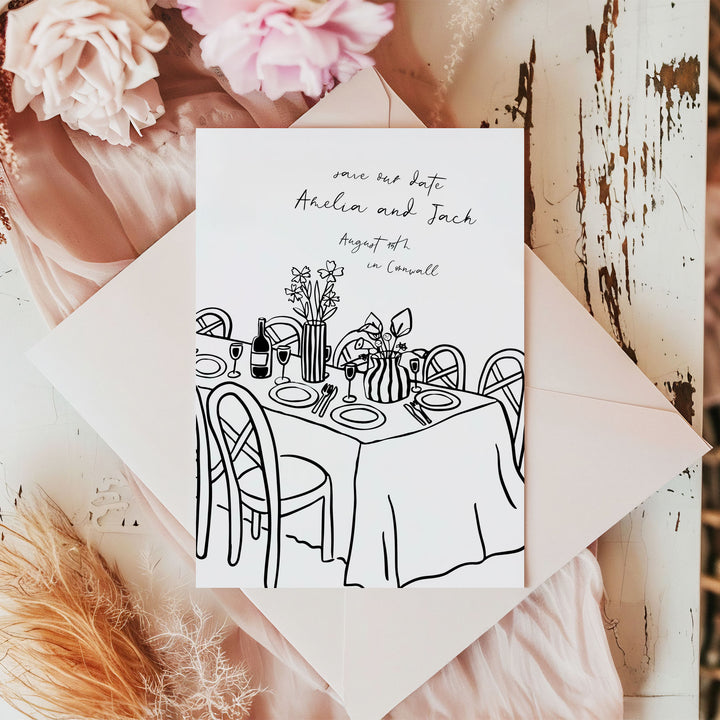 save our date
Amelia and Jack
August 18th
in Cornwall